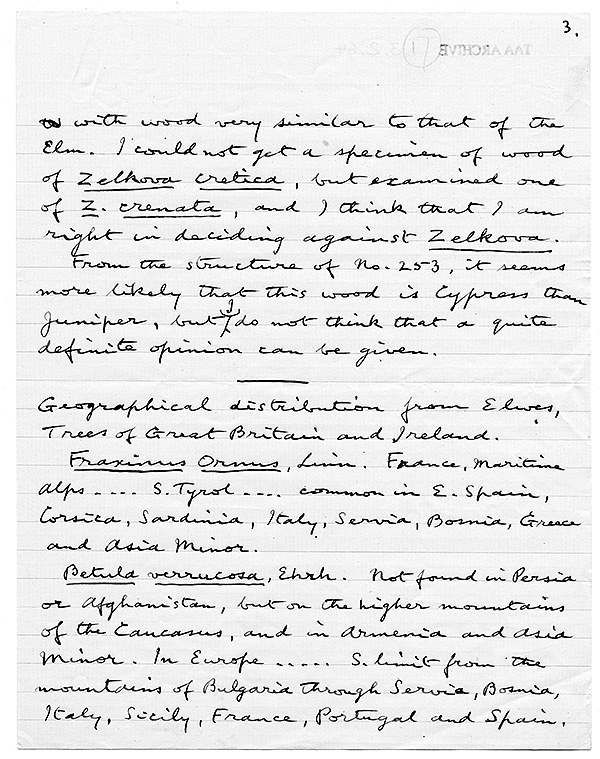 3.
TAA ARCHIVE 17 3.2.64
with wood very similar to that of the
Elm. I could not get a specimen of wood
of Zelkova cretica, but examined one
of Z. crenata, and I think that I am
right in deciding against Zelkova.
From the structure of No. 253, it seems
more likely that this wood is Cypress than
Juniper, but I do not think that a quite
definite opinion can be given.
Geographical distribution from Elwes,
Trees of Great Britain and Ireland.
Fraxinus Ornus, Linn. France, Maritime
Alps .... S. Tyrol .... common in E. Spain,
Corsica, Sardinia, Italy, Servia, Bosnia, Greece
and Asia Minor.
Betula verrucosa, Ehrh. Not found in Persia
or Afghanistan, but on the higher mountains
of the Caucasus, and in Armenia and Asia
Minor. In Europe ..... S. limit from the
mountains of Bulgaria through Servia, Bosnia,
Italy, Sicily, France, Portugal and Spain.